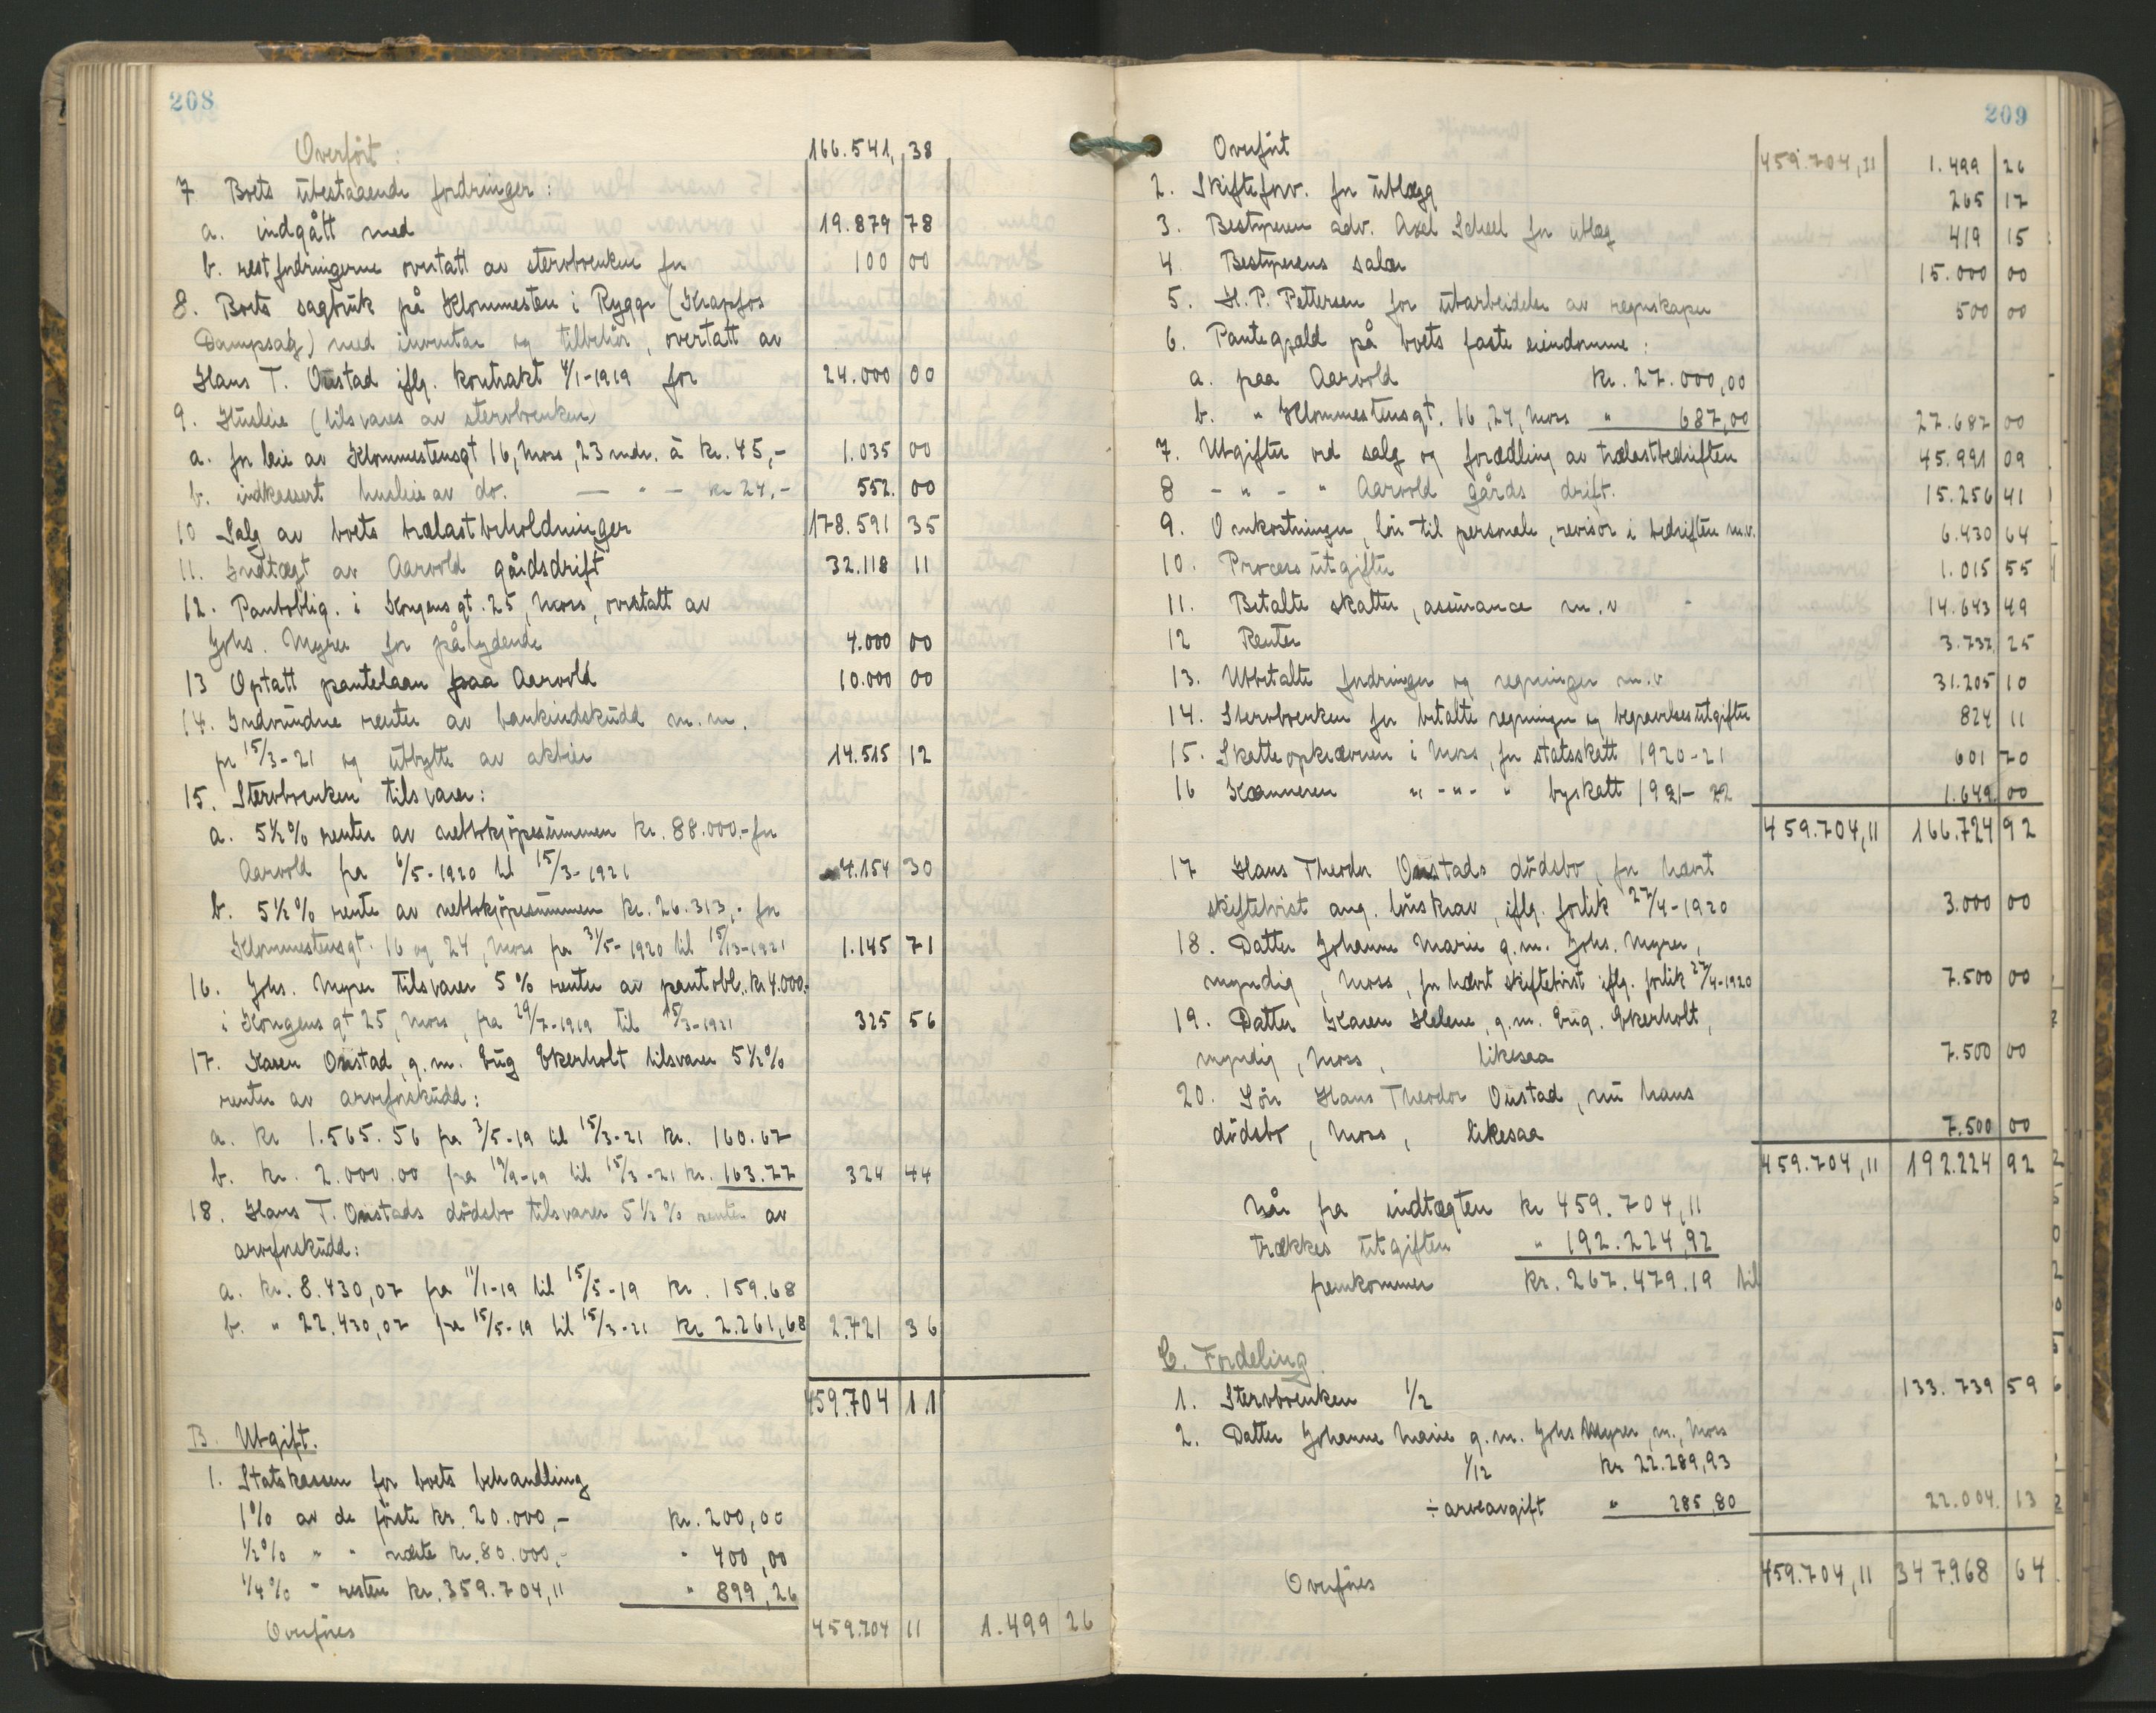 208
Overført : 166.541, 38
7 Boets utestaaende fordringer :
a. indgått med 19.879 78
b. restfordringerne overtatt av stervboenken for 100 00
8. Boets sagbruk på Klommesten i Rygge (Krapfos
Dampsag) med inventar og tilbehør, overtatt av
Hans T. Oustad iflg. kontrakt 4/1-1919 for 24.000 00
9. Husleie (tilsvares av stervboenken)
a. for leie av Klommestensgt 16, Moss, 23 mdr. à kr. 45,- 1.035 00
b. indkassert husleie av do. — " — kr 24,- 552. 00
10 Salg av boets trælastbeholdninger 178.591 35
11. Indtægt av Aarvold gårdsdrift 32.118 11
12. Pantoblig. i Kongensgt. 25, Moss, overtatt av
Johs. Myrer for pålydende 4.000 00
13 Optatt pantelaan paa Aarvold 10.000 00
14. Indvundne renter av bankindskudd m.m.
pr 15/3-21 og utbytte av aktier 14.515 12
15. Stervboenken tilsvarer:
a. 5½% renter av nettokjøpesummen kr. 88.000.- for
Aarvold fra 6/5-1920 til 15/3-1921 4.154 30
b. 5½% rente av nettokjøpesummen kr. 26.313,- for
Klommestensgt. 16 og 24, Moss fra 31/5-1920 til 15/3-1921 1.145 71
16. Johs. Myrer tilsvarer 5% renter av pantobl. kr 4.000.-
i Kongensgt 25, Moss, fra 29/7-1919 til 15/3-1921 325 56
17. Karen Oustad, g.m. Eug Ekerholt tilsvarer 5½%
renter av arveforskudd:
a. kr 1.565.56 fra 3/5-19 til 15/3-21 kr. 160.67
b. kr. 2.000.00 fra 19/9-19 til 15/3-21 kr. 163.77 324 44
18. Hans T. Oustads dødsbo tilsvarer 5½% renter av
arveforskudd:
a. kr. 8.430,07 fra 11/1-19 til 15/5-19 kr. 159.68
b. " 22.430,07 fra 15/5-19 til 15/3-21 kr 2.261,68 2.421 36
459.704 11
B. Utgift.
1. Statskassen for boets behandling
1% av de første kr. 20.000,- kr. 200,00
½% " " næste kr. 80.000,- " 400,00
¼% " resten kr. 359.704,11 " 899,26
Overføres 459.704 11 1.499 26
209
Overført 459.704,11 1.499 26
2. Skifteforv. for utlægg 265 17
3. Bestyreren adv. Axel Scheel for utlæg 419 15
4. Bestyrerens salær 15.000 00
5. H.P. Pettersen for utarbeidelse av regnskaper 500 00
6. Pantegjæld på boets faste eiendomme :
a. paa Aarvold kr. 27.000,00
b. " Klommestensgt. 16, 24, Moss " 687,00 27.687 00
7. Utgifter ved salg og forædling av trælastbedriften 45.991 09
8 - " - " Aarvold gårds drift. 15.256 41
9. Omkostninger, løn til personale, revisor i bedriften m.v. 6.430 64
10. Procesutgifter 1.015 55
11. Betalte skatter, assurance m.v 14.643 49
12 Renter 3.737 25
13. Utbetalte fordringer og regninger m.v 31.205 10
14. Stervboenken for betalte regninger og begravelsesutgifter 824 11
15. Skatteopkræveren i Moss, for statsskatt 1920-21 601 70
16 Kæmneren " - " - " byskatt 1921-22 1.649 00
459.704,11 166.724 92
17 Hans Theodor Oustads dødsbo, for hævet
skiftetvist ang. lønskrav, iflg. forlik 27/4-1920 3.000 00
18. Datter Johanne Marie g.m. Johs. Myrer,
myndig, Moss, for hævet skiftetvist iflg. forlik 27/4-1920 7.500 00
19. Datter Karen Helene, g.m. Eug. Ekerholt,
myndig, Moss, likesaa 7.500 00
20. Søn Hans Theodor Oustad, nu hans
dødsbo, Moss, likesaa 7.500 00
459.704,11 192.224 92
Når fra indtægten kr 459.704,11
trækkes utgiften " 192.224,92
fremkommer kr. 267.479.19 til
C. Fordeling
1. Stervboenken 1/2 133.739 59
2. Datter Johanne Marie g.m. Johs Myrer, m., Moss
1/12 kr 22.289,93
÷ arveavgift " 285,80 22.004. 13
Overføres 459.704,11 347.968 64